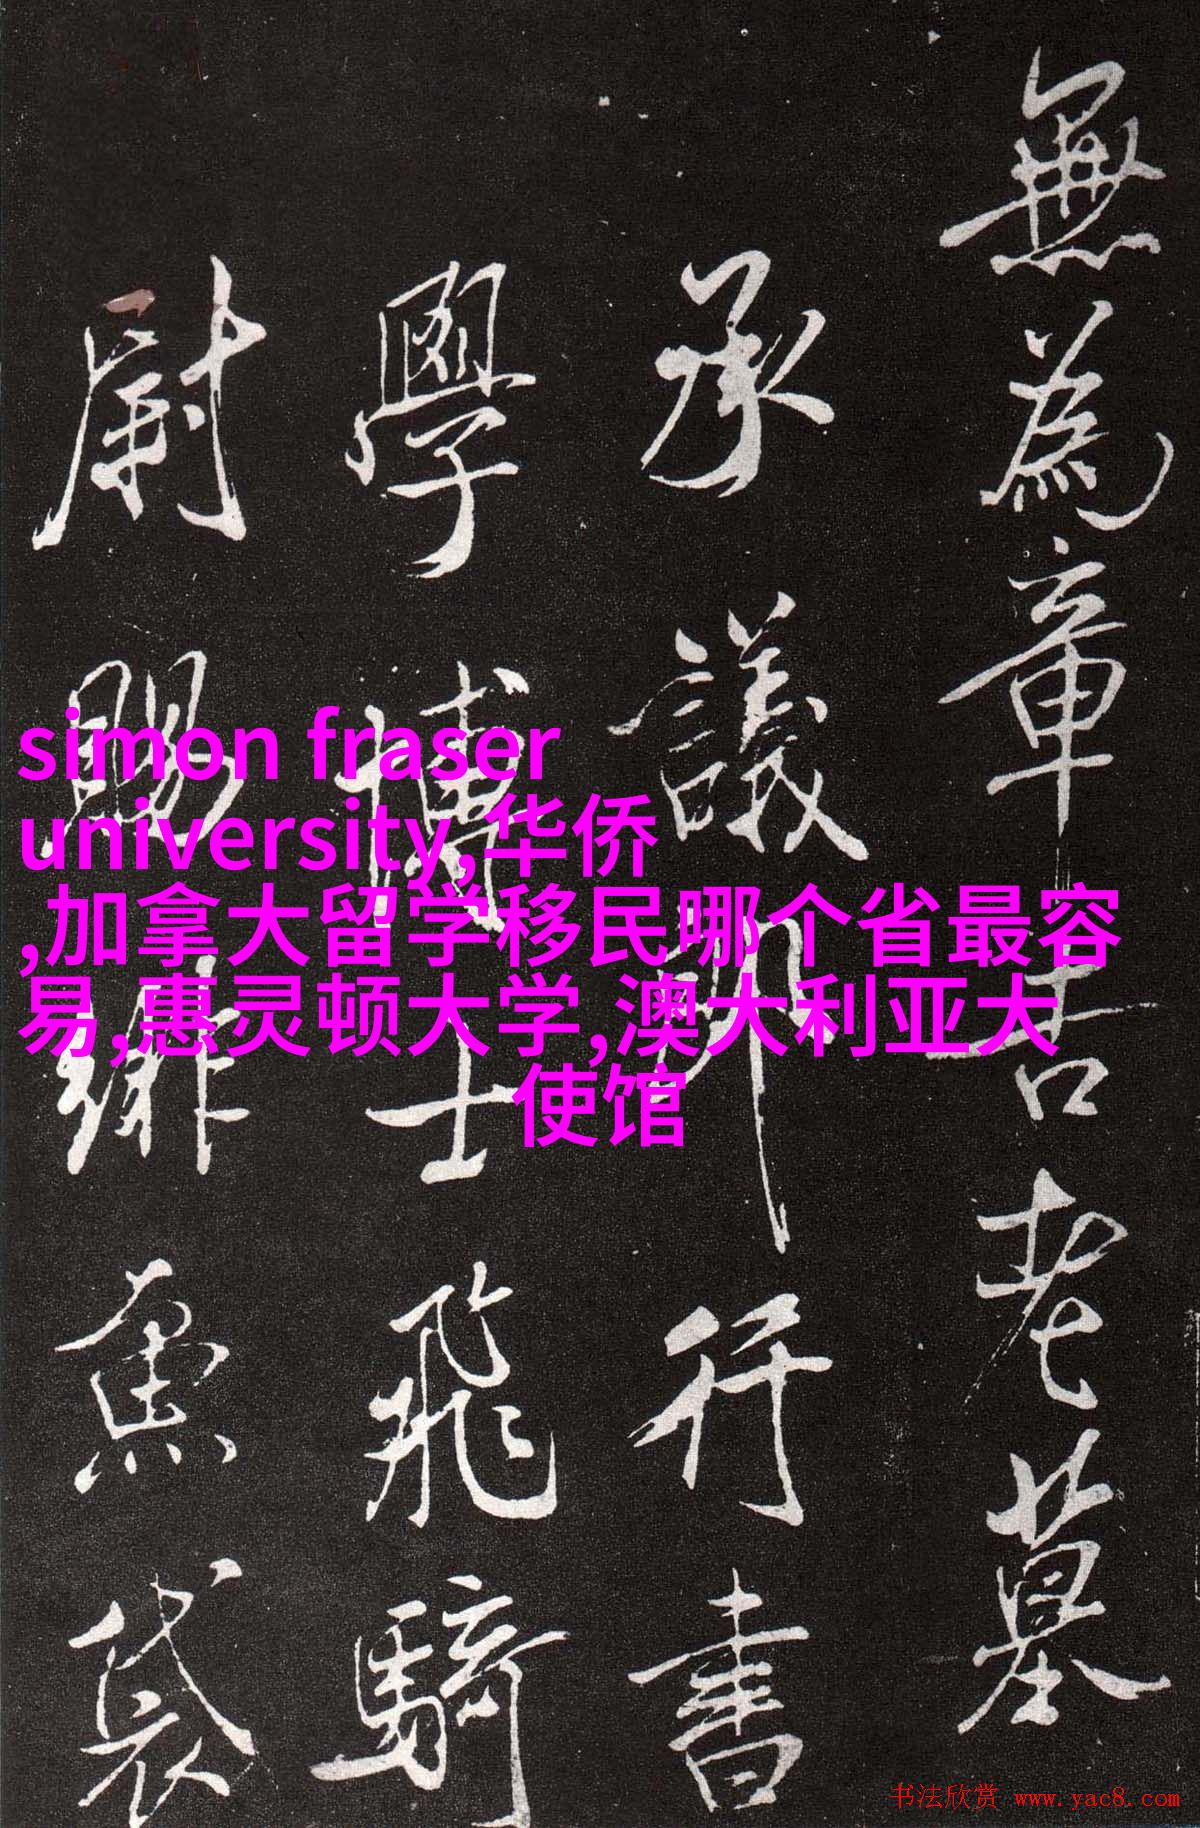 無為章吉老墓
承議郎行書
學博士飛騎
尉賜緋魚袋
simon fraser
university,华侨
,加拿大留学移民哪个省最容
易,惠灵顿大学,澳大利亚大
使馆
书法欣赏 www.yac8.com